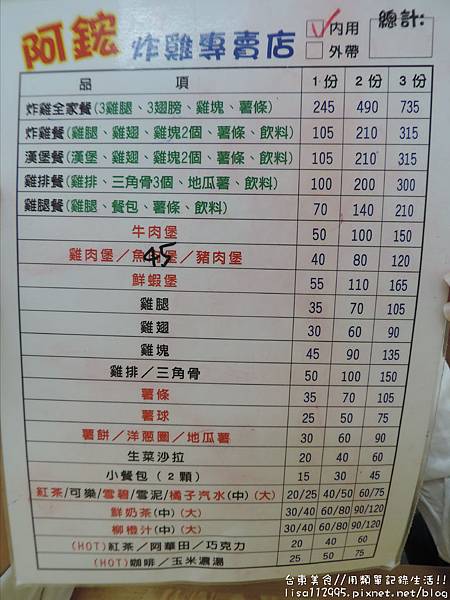 阿鋐 炸雞專賣店
內用
外帶
總計:
品 項 1份 2份 3份
炸雞全家餐(3雞腿、3翅膀、雞塊、薯條) 245 490 735
炸雞餐(雞腿、雞翅、雞塊2個、薯條、飲料) 105 210 315
漢堡餐(漢堡、雞翅、雞塊2個、薯條、飲料) 105 210 315
雞排餐(雞排、三角骨3個、地瓜薯、飲料) 100 200 300
雞腿餐(雞腿、餐包、薯條、飲料) 70 140 210
牛肉堡 50 100 150
雞肉堡／魚 堡／豬肉堡 40 80 120
45
鮮蝦堡 55 110 165
雞腿 35 70 105
雞翅 30 60 90
雞塊 45 90 135
雞排／三角骨 50 100 150
薯條 35 70 105
薯球 25 50 75
薯餅／洋蔥圈／地瓜薯 30 60 90
生菜沙拉 20 40 60
小餐包（2顆） 15 30 45
紅茶/可樂/雪碧/雪泥/橘子汽水(中)(大) 20/25 40/50 60/75
鮮奶茶(中)(大) 30/40 60/80 90/120
柳橙汁(中)(大) 30/40 60/80 90/120
(HOT)紅茶／阿華田／巧克力 20 40 60
(HOT)咖啡／玉米濃湯 25 50 75
台東美食//用類單記錄生活!!
lisa112995.pixnet.net/blog